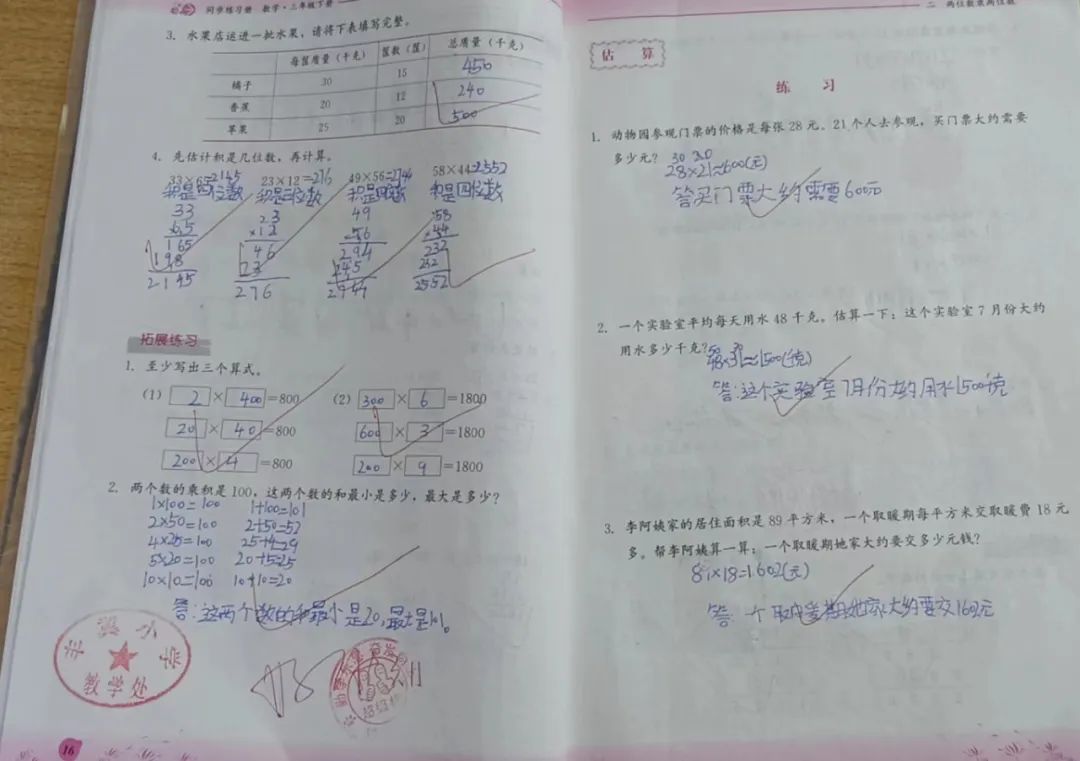 同步练习册 数学·三年级下册
3. 水果店运进一批水果,请将下表填写完整。
每筐质量(千克) 筐数(筐) 总质量(千克)
橘子 30 15 450
香蕉 20 12 240
苹果 25 20 500
4. 先估计积是几位数,再计算。
33×65=2145 23×12=276 49×56=2744 58×44=2552
积是四位数 积是三位数 积是四位数 积是四位数
33 23 49 58
65 ×12 56 ×44
165 46 294 232
198 23 245 232
2145 276 2744 2552
拓展练习
1. 至少写出三个算式。
(1) 2×400=800 (2) 300×6=1800
20×40=800 600×3=1800
200×4=800 200×9=1800
2. 两个数的乘积是100,这两个数的和最小是多少,最大是多少?
1×100=100 1+100=101
2×50=100 2+50=52
4×25=100 25+4=29
5×20=100 20+5=25
10×10=100 10+10=20
答:这两个数的和最小是20,最大是101。
小学
教学处
16
二 两位数乘两位数
估算
练习
1. 动物园参观门票的价格是每张28元。21个人去参观,买门票大约需要
多少元?
30 20
28×21≈600(元)
答买门票大约需要600元
2. 一个实验室平均每天用水48千克。估算一下:这个实验室7月份大约
用水多少千克?
50 30
48×31≈1500(千克)
答:这个实验室7月份大约用水1500千克
3. 李阿姨家的居住面积是89平方米,一个取暖期每平方米交取暖费18元
多。帮李阿姨算一算:一个取暖期她家大约要交多少元钱?
89×18=1602(元)
答:一个取暖期她家大约要交1602元